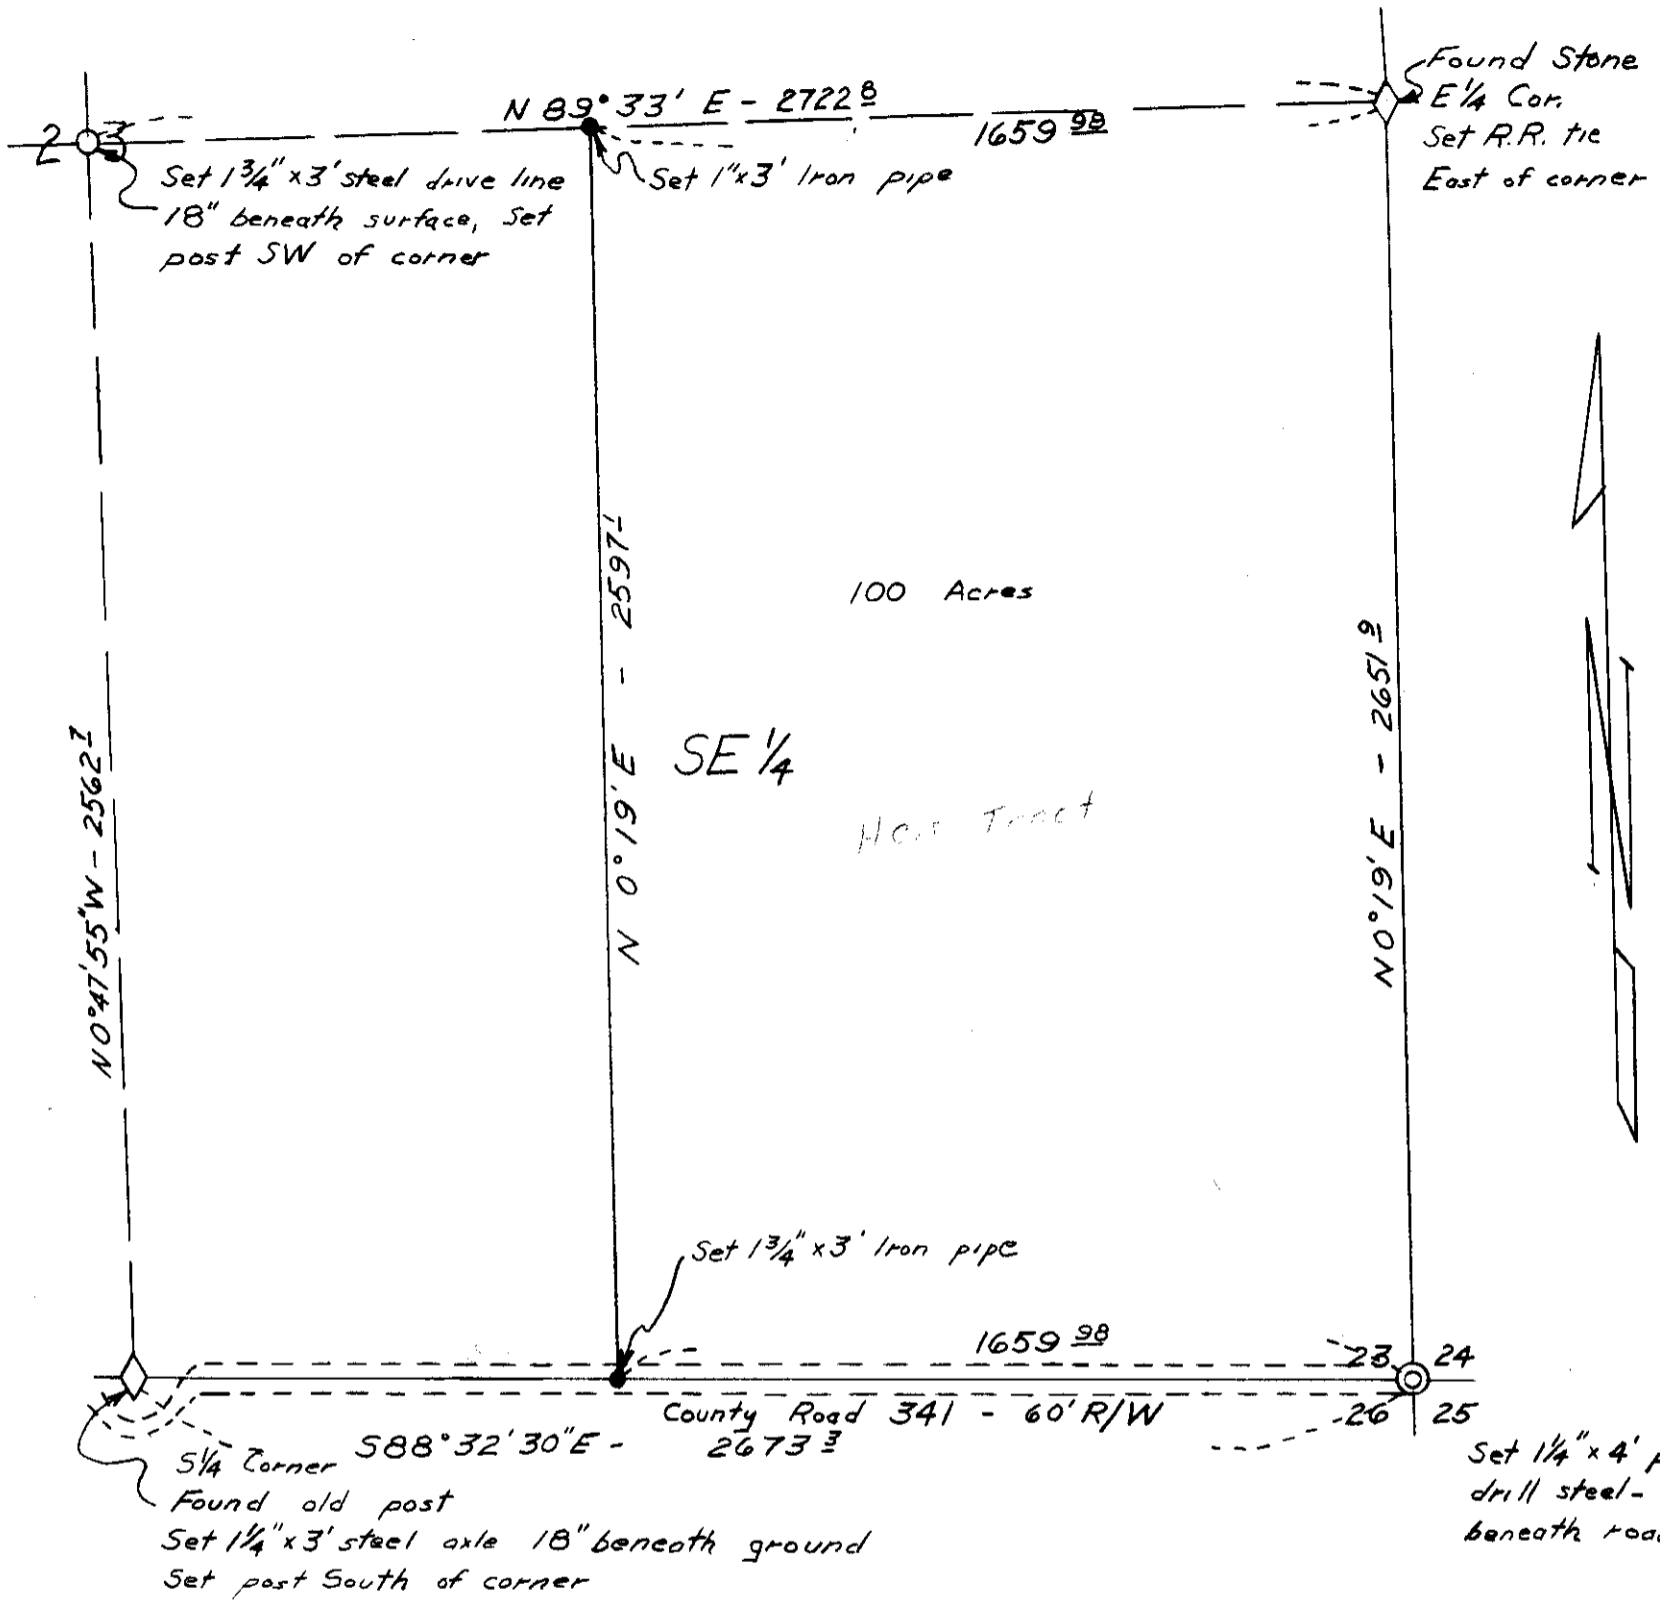 Found Stone
E 1/4 Cor.
Set R.R. tie
East of corner
N 89° 33' E - 2722 8
1659 98
2
3
Set 1 3/4" x 3' steel drive line
18" beneath surface, Set
post SW of corner
Set 1" x 3' Iron pipe
N 0° 19' E - 2597 1
100 Acres
N 0° 19' E - 2651 9
SE 1/4
Tract
N 0° 47' 55" W - 2562 7
N
Set 1 3/4" x 3' Iron pipe
1659 98
23 24
26 25
County Road 341 - 60' R/W
S 88° 32' 30" E - 2673 3
S 1/4 Corner
Found old post
Set 1 1/4" x 3' steel axle 18" beneath ground
Set post South of corner
Set 1 1/4" x 4'
drill steel -
beneath road